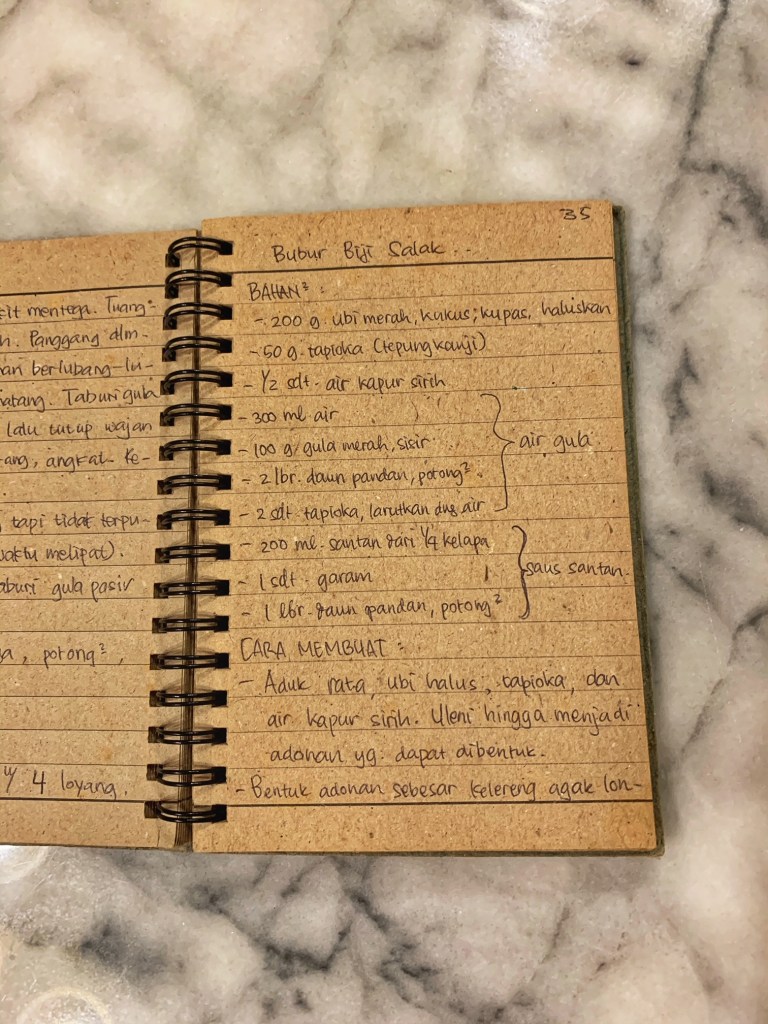 it mentega. Tuang
n. Panggang dlm-
an berlubang-lu-
atang. Taburi gula
lalu tutup wajan
ang, angkat. Ke-
tapi tidak terpu-
waktu melipat).
aburi gula pasir
a, potong²,
4 loyang.
35
Bubur Biji Salak..
BAHAN²:
- 200 g. ubi merah, kukus, kupas, haluskan
- 50 g. tapioka (tepung kanji)
- 1/2 sdt. air kapur sirih
- 300 ml air
- 100 g. gula merah, sisir
air gula
- 2 lbr. daun pandan, potong².
- 2 sdt. tapioka, larutkan dng air
- 200 ml. santan dari 1/4 kelapa
- 1 sdt. garam
saus santan.
- 1 lbr. daun pandan, potong²
CARA MEMBUAT:
- Aduk rata, ubi halus, tapioka, dan
air kapur sirih. Uleni hingga menjadi
adonan yg. dapat dibentuk.
- Bentuk adonan sebesar kelereng agak lon-